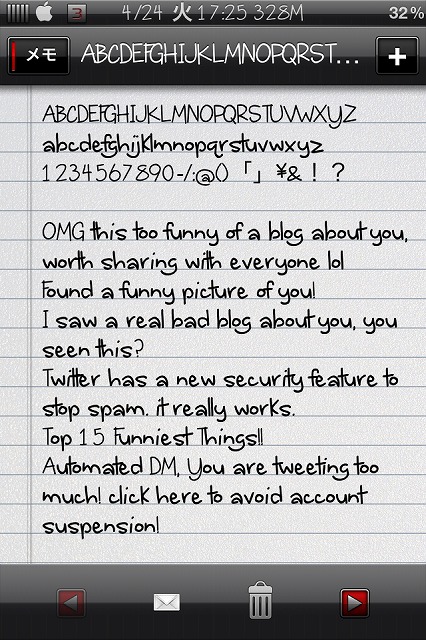 3 4/24 火 17:25 328M 32%
メモ ABCDEFGHIJKLMNOPQRST... +
ABCDEFGHIJKLMNOPQRSTUVWXYZ
abcdefghijklmnopqrstuvwxyz
1234567890-/:@()「」¥&！？
OMG this too funny of a blog about you,
worth sharing with everyone lol
Found a funny picture of you!
I saw a real bad blog about you, you
seen this?
Twitter has a new security feature to
stop spam. it really works.
Top 15 Funniest Things!!
Automated DM, You are tweeting too
much! click here to avoid account
suspension!